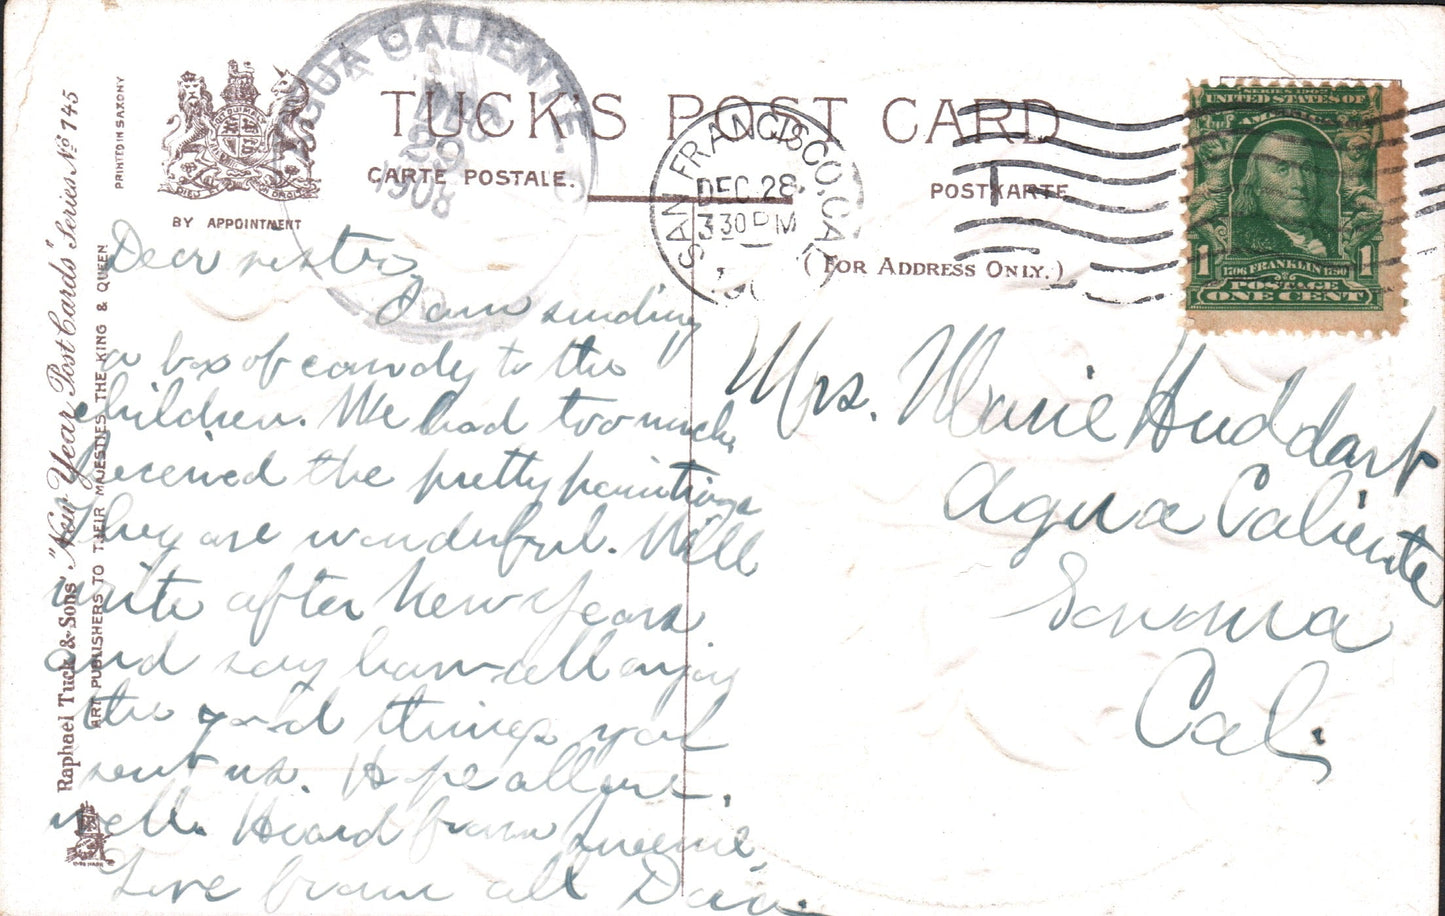 AGUA CALIENTE.
DEC
29
1908
TUCK'S POST CARD
CARTE POSTALE.
POSTKARTE
BY APPOINTMENT
(FOR ADDRESS ONLY.)
SAN FRANCISCO, CAL.
DEC 28
3 30 PM
SERIES 1902
UNITED STATES OF
AMERICA
1706 FRANKLIN 1790
1 1
POSTAGE
ONE CENT
PRINTED IN SAXONY
Raphael Tuck & Sons' "New Year Post Cards" Series No. 745
ART PUBLISHERS TO THEIR MAJESTIES THE KING & QUEEN
Dear sister,
I am sending
a box of candy to the
children. We had too much,
Received the pretty paintings
They are wonderful. Will
write after New Years
and say how all enjoy
the good things you
sent us. Hope all are
well. Heard from
Love from all
Mrs. Marie Huddart
Agua Caliente
Sonoma
Cal.